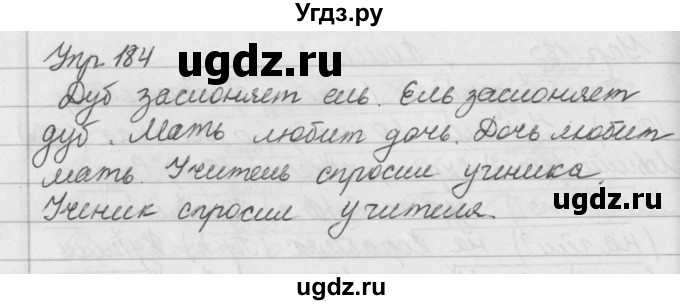 Угдз.ру
Упр 184
ugdz.ru
Дуб заслоняет ель. Ель заслоняет
дуб. Мать любит дочь. Дочь любит
мать. Учитель спросил ученика.
Ученик спросил учителя.
ugdz.ru
ugdz.ru
ugdz.ru